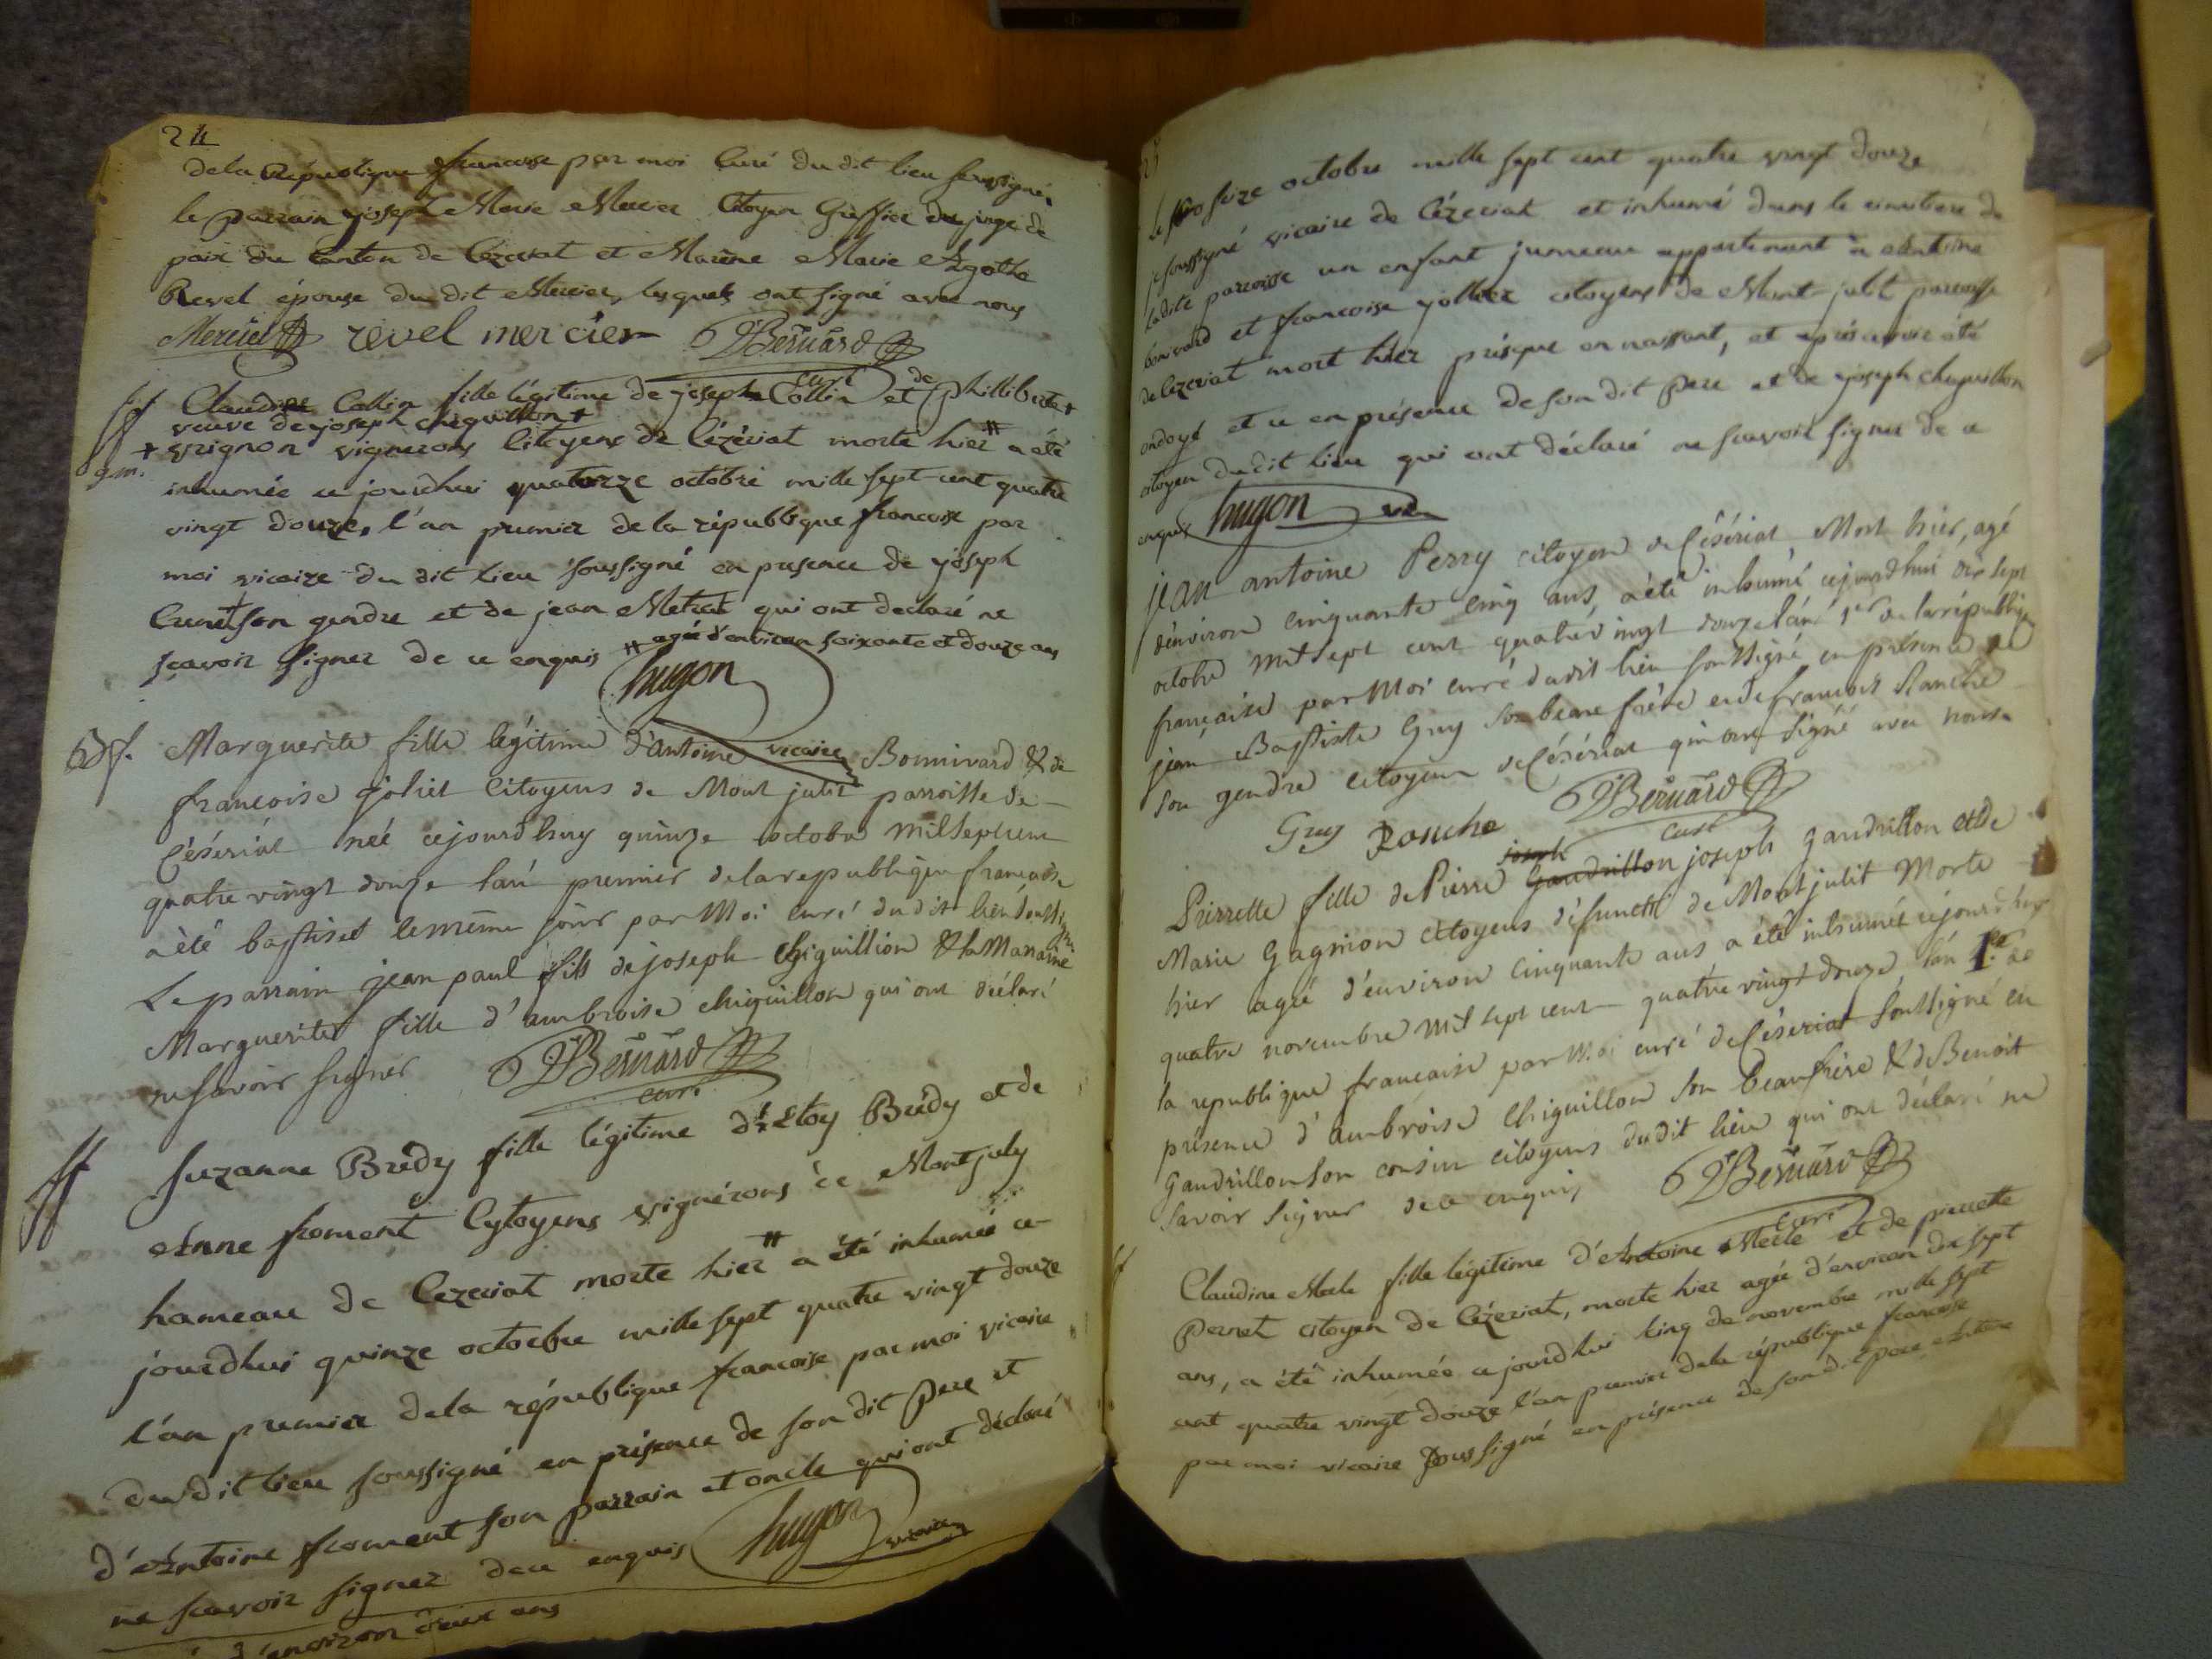 24
dela République francoise par moi Curé du dit lieu soussigné,
le parrain joseph Marie Mercier Citoyen Greffier du juge de
paix du Canton de Cézeriat et Marène Marie Agathe
Revel épouse du dit Mercier, lesquels ont signé avec nous
Mercier revel mercier DBernard
curé
Claudine Collin fille légitime de joseph Collin et de Philliberte +
veuve de joseph chiguillon +
+ vrignon vignerons Citoyens de Cézériat morte hier # a été
inhumée ce jourdhui quatorze octobre mille sept cent quatre
vingt douze, l'an premier de la république francoise par
moi vicaire du dit lieu soussigné en presence de joseph
Cunet son gendre et de jean Metrat qui ont declaré ne
scavoir signer de ce enquis # agée d'environ soixante et douze ans
hugon
vicaire
Marguerite fille légitime d'antoine Bonnivard & de
francoise joliet Citoyens de Mont julit parroisse de
Céseriat née cejourdhuy quinze octobre mil sept cent
quatre vingt douze l'an premier de la republique francaise
a été baptisée le même jour par Moi curé du dit lieu soussigné
Le parrain jean paul fils de joseph Chiguillion & la Maraine
Marguerite fille d'ambroise chiguillon qui ont déclaré
ne savoir signer DBernard
curé
Suzanne Bredy fille légitime d'Eloy Bredy et de
Anne froment Cytoyens vignérons de Montjuly
hameau de Cezeriat morte hier # a été inhumée ce-
jourdhui quinze octobre mille sept quatre vingt douze
l'an premier dela république francoise par moi vicaire
du dit lieu soussigné en présence de son dit Pere et
d'Antoine froment son parrain et oncle qui ont déclaré
ne scavoir signer de ce enquis hugon vicaire
d'environ deux ans
Le seize octobre mille sept cent quatre vingt douze
je soussigné vicaire de Cézeriat et inhumé dans le cimitiere de
ladite paroisse un enfant jumeau appartenant à Antoine
bonivard et francoise jolliet citoyens de Mont-julit paroisse
de Cezeriat mort hier présque en naissant, et après avoir été
ondoyé et ce en présence de son dit Pere et de joseph chiguillon
citoyen du dit lieu qui ont déclaré ne scavoir signer de ce
enquis hugon vic.
jean antoine Perry citoyen de Césériat Mort hier, agé
d'environ cinquante cinq ans, a été inhumé cejourdhui dix sept
octobre mil sept cent quatre vingt douze l'an 1er de la république
française par Moi curé dudit lieu soussigné en présence de
jean Baptiste Guy son beau frère et de francois Ranche
son gendre citoyens de Césériat qui ont signé avec nous
Guy Ranche DBernard
curé
joseph
Pierrette fille de Pierre Gaudrillon joseph gaudrillon et de
Marie Gagnion citoyens défunctz de Montjulit Morte
hier agée d'environ cinquante ans a été inhumée cejourdhuy
quatre novembre mil sept cent quatre vingt douze l'an 1er de
la republique francaise par Moi curé de Céseriat soussigné en
présence d'ambroise Chiguillon son beaufrère & de Benoit
Gaudrillon son cousin citoyens dudit lieu qui ont déclaré ne
savoir signer de ce enquis DBernard
curé
Claudine Merle fille légitime d'Antoine Merle et de pierrette
Pernet citoyen de Cézeriat, morte hier agée d'environ dix sept
ans, a été inhumée ce jourdhui cinq de novembre mille sept
cent quatre vingt douze l'an premier dela république francoise
par moi vicaire soussigné en présence de son dit pere Antoine